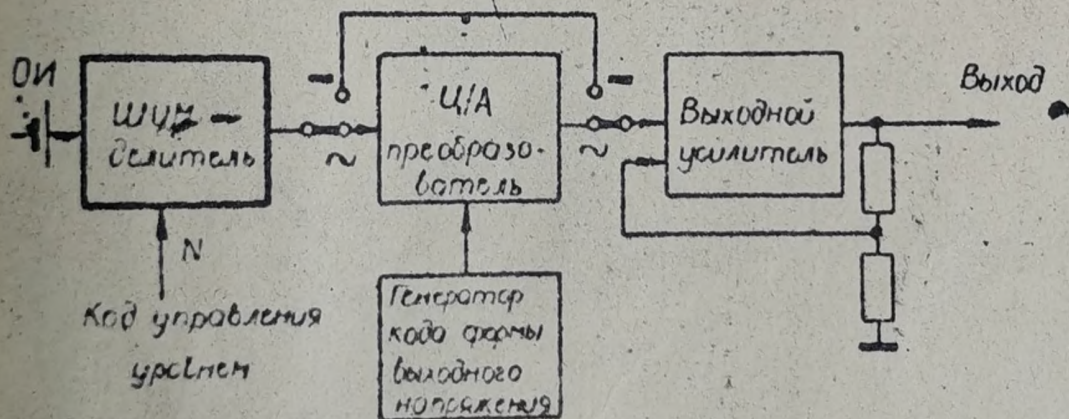 ОИ
ШИМ –
делитель
~
Ц/А
преобразо-
ватель
~
Выходной
усилитель
Выход
N
Код управления
уровнем
Генератор
кода формы
выходного
напряжения